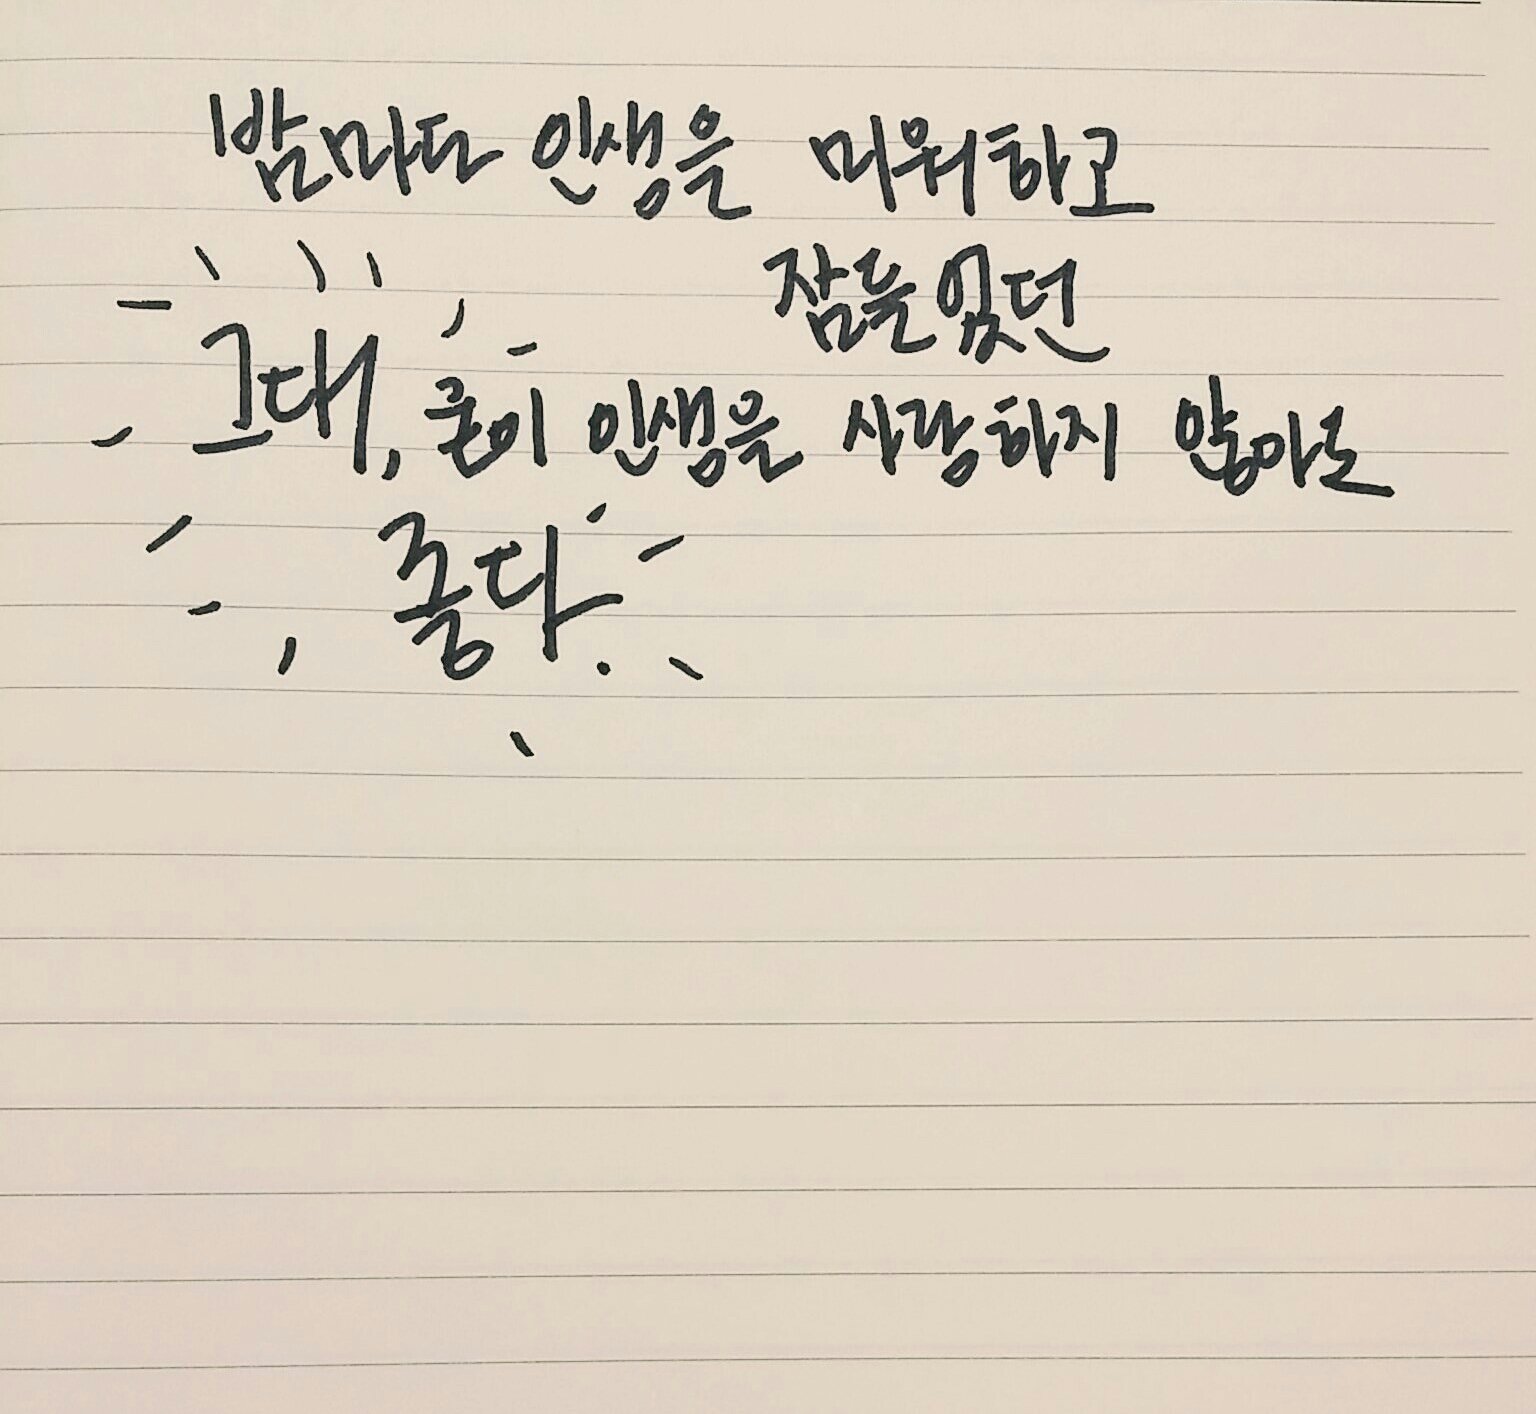 밤마다 인생을 미워하고
잠들었던
그대, 굳이 인생을 사랑하지 않아도
좋다.